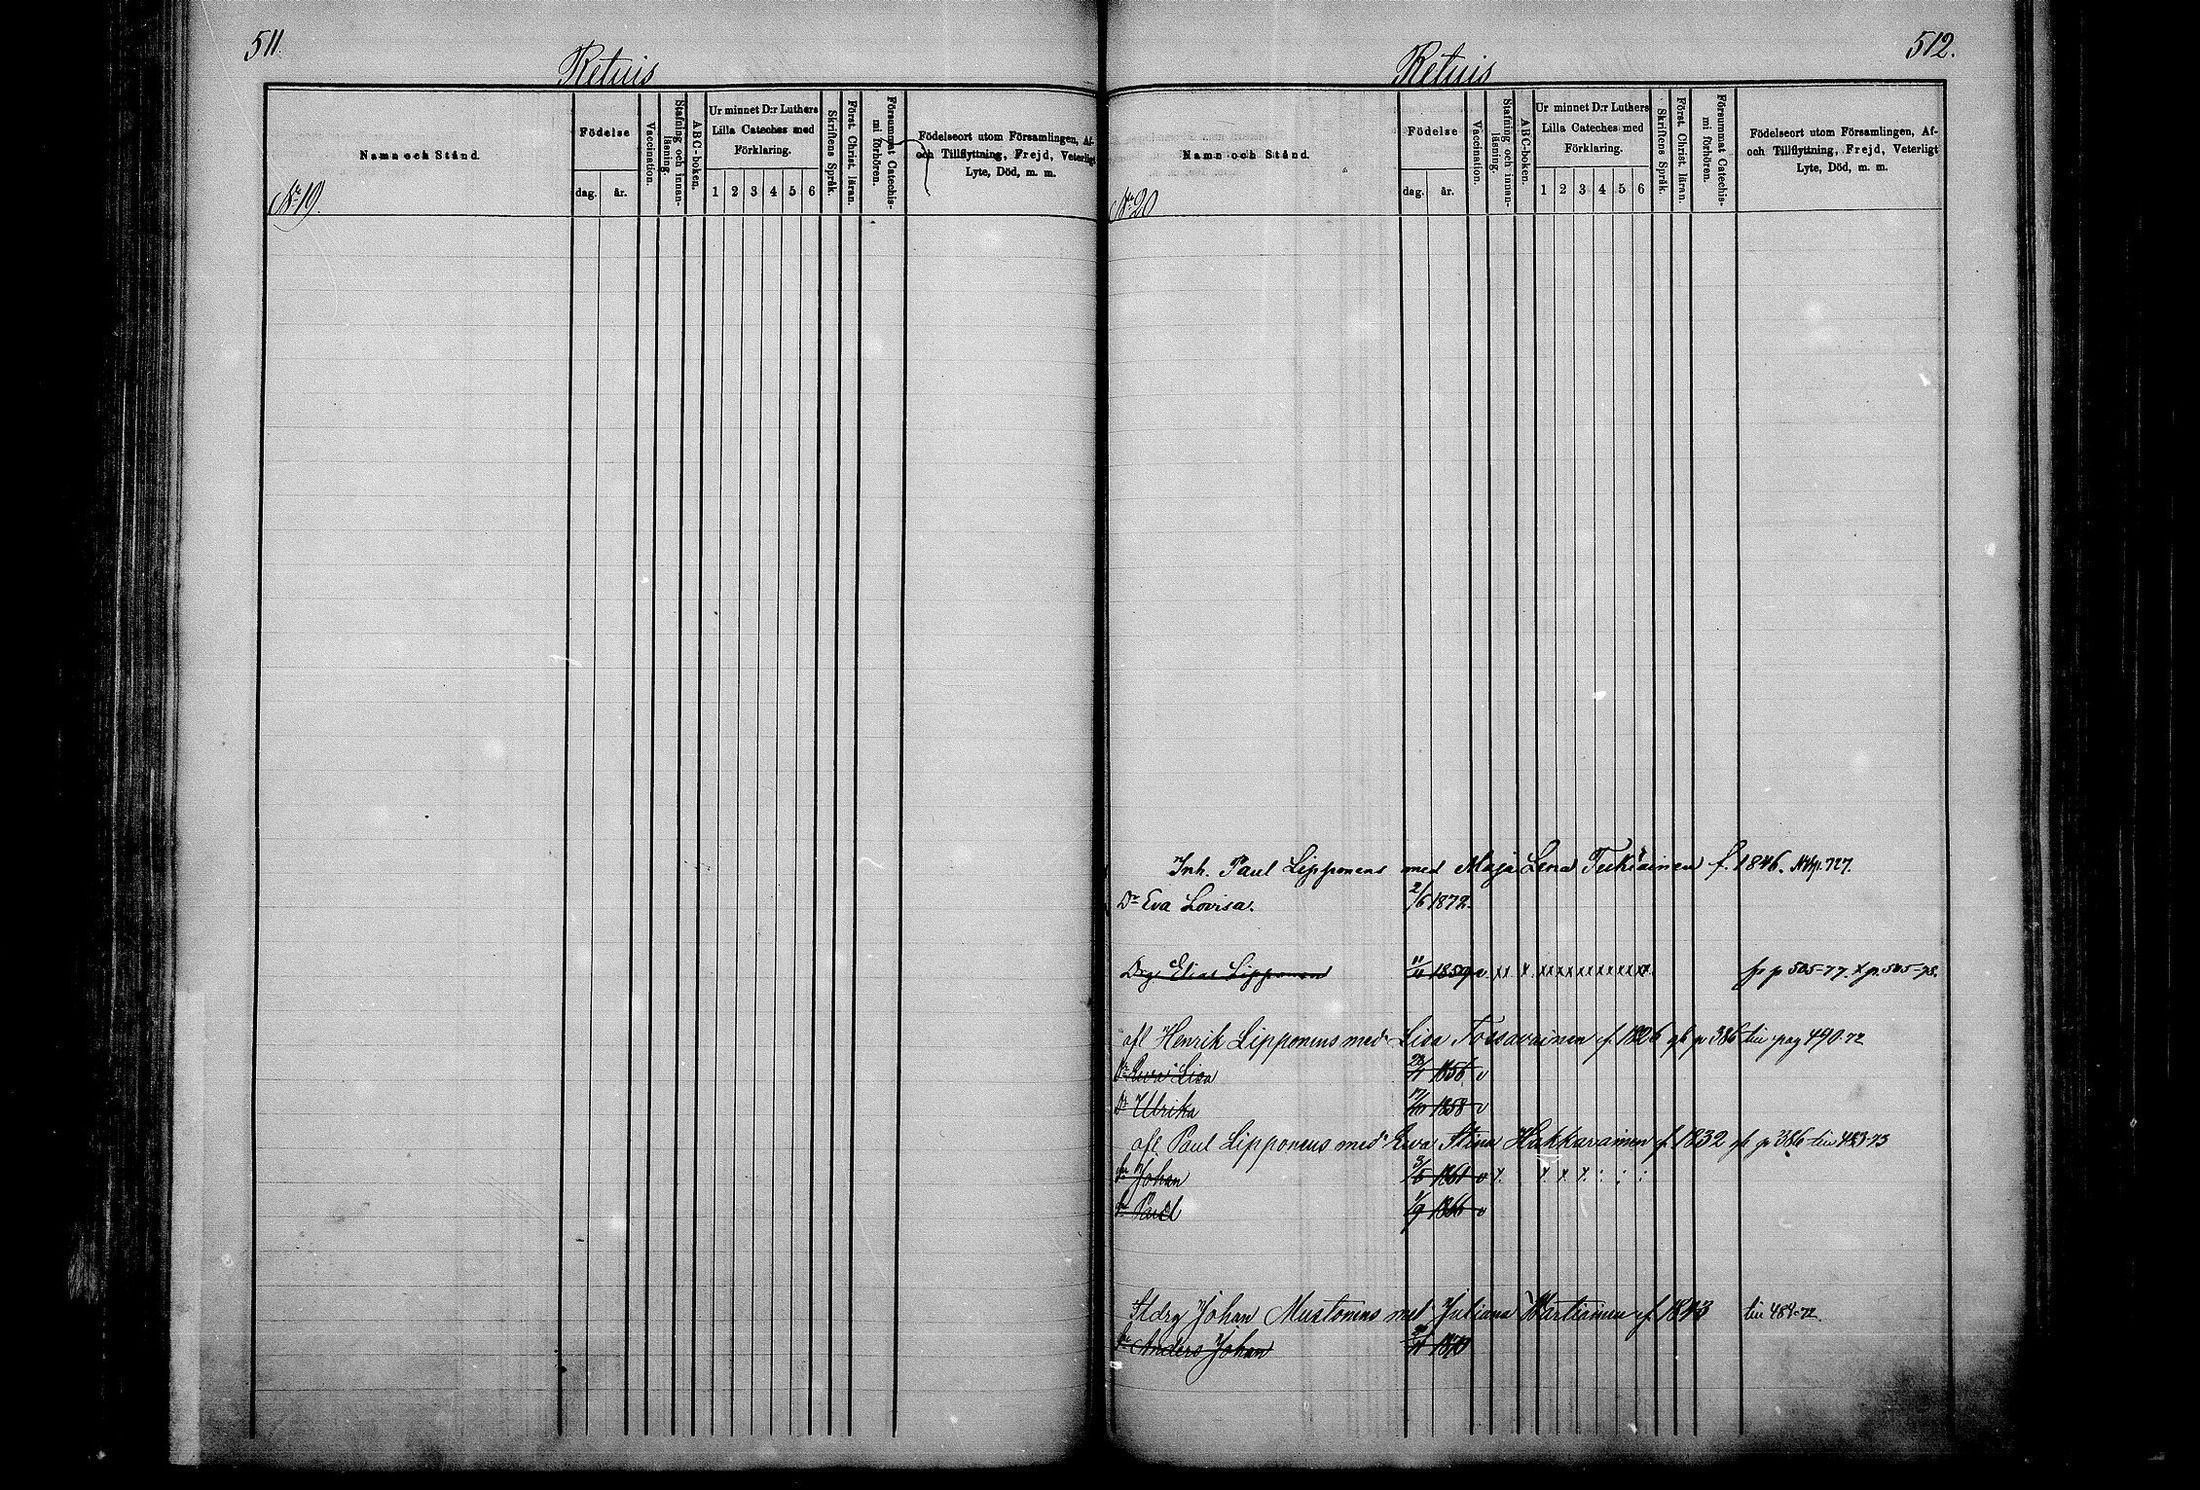 511.
Retuis
Namn och Stånd.
Födelse
dag. år.
Vaccination.
Stafning och innan-läsning.
ABC-boken.
Ur minnet D:r Luthers
Lilla Cateches med
Förklaring.
1 2 3 4 5 6
Skriftens Språk.
Först. Christ. läran.
Försummat Catechis-mi förhören.
Födelseort utom Församlingen, Af-
och Tillflyttning, Frejd, Veterligt
Lyte, Död, m. m.
No 19.
512.
Retuis
Namn och Stånd.
Födelse
dag. år.
Vaccination.
Stafning och innan-läsning.
ABC-boken.
Ur minnet D:r Luthers
Lilla Cateches med
Förklaring.
1 2 3 4 5 6
Skriftens Språk.
Först. Christ. läran.
Försummat Catechis-mi förhören.
Födelseort utom Församlingen, Af-
och Tillflyttning, Frejd, Veterligt
Lyte, Död, m. m.
No 20
Inh. Paul Lipponens med Maja Lena f. 1846. 727.
Dr Eva Lovisa. 2/6 1872.
Drg. Elias Lipponen 1859 v xx x xxxxxxxxx fr p 505=77. x p. 505=78.
afl Henrik Lipponens med Lisa Tossavainen f. 1826 p 386 tin pag 490.72
Dr Ewa Lisa 1856 v
Dr Ulrika 1858 v
afl Paul Lipponens med Ewa Stina Hakkarainen f. 1832 p 386 tin
Sn Johan 3/5 1861 v x. x x x : : :
Sn Paul 1/9 1866 v
Stdrg Johan Mustonens med Juliana Martiainen f. 1843 tin 484=72.
Sn Anders Johan 1870